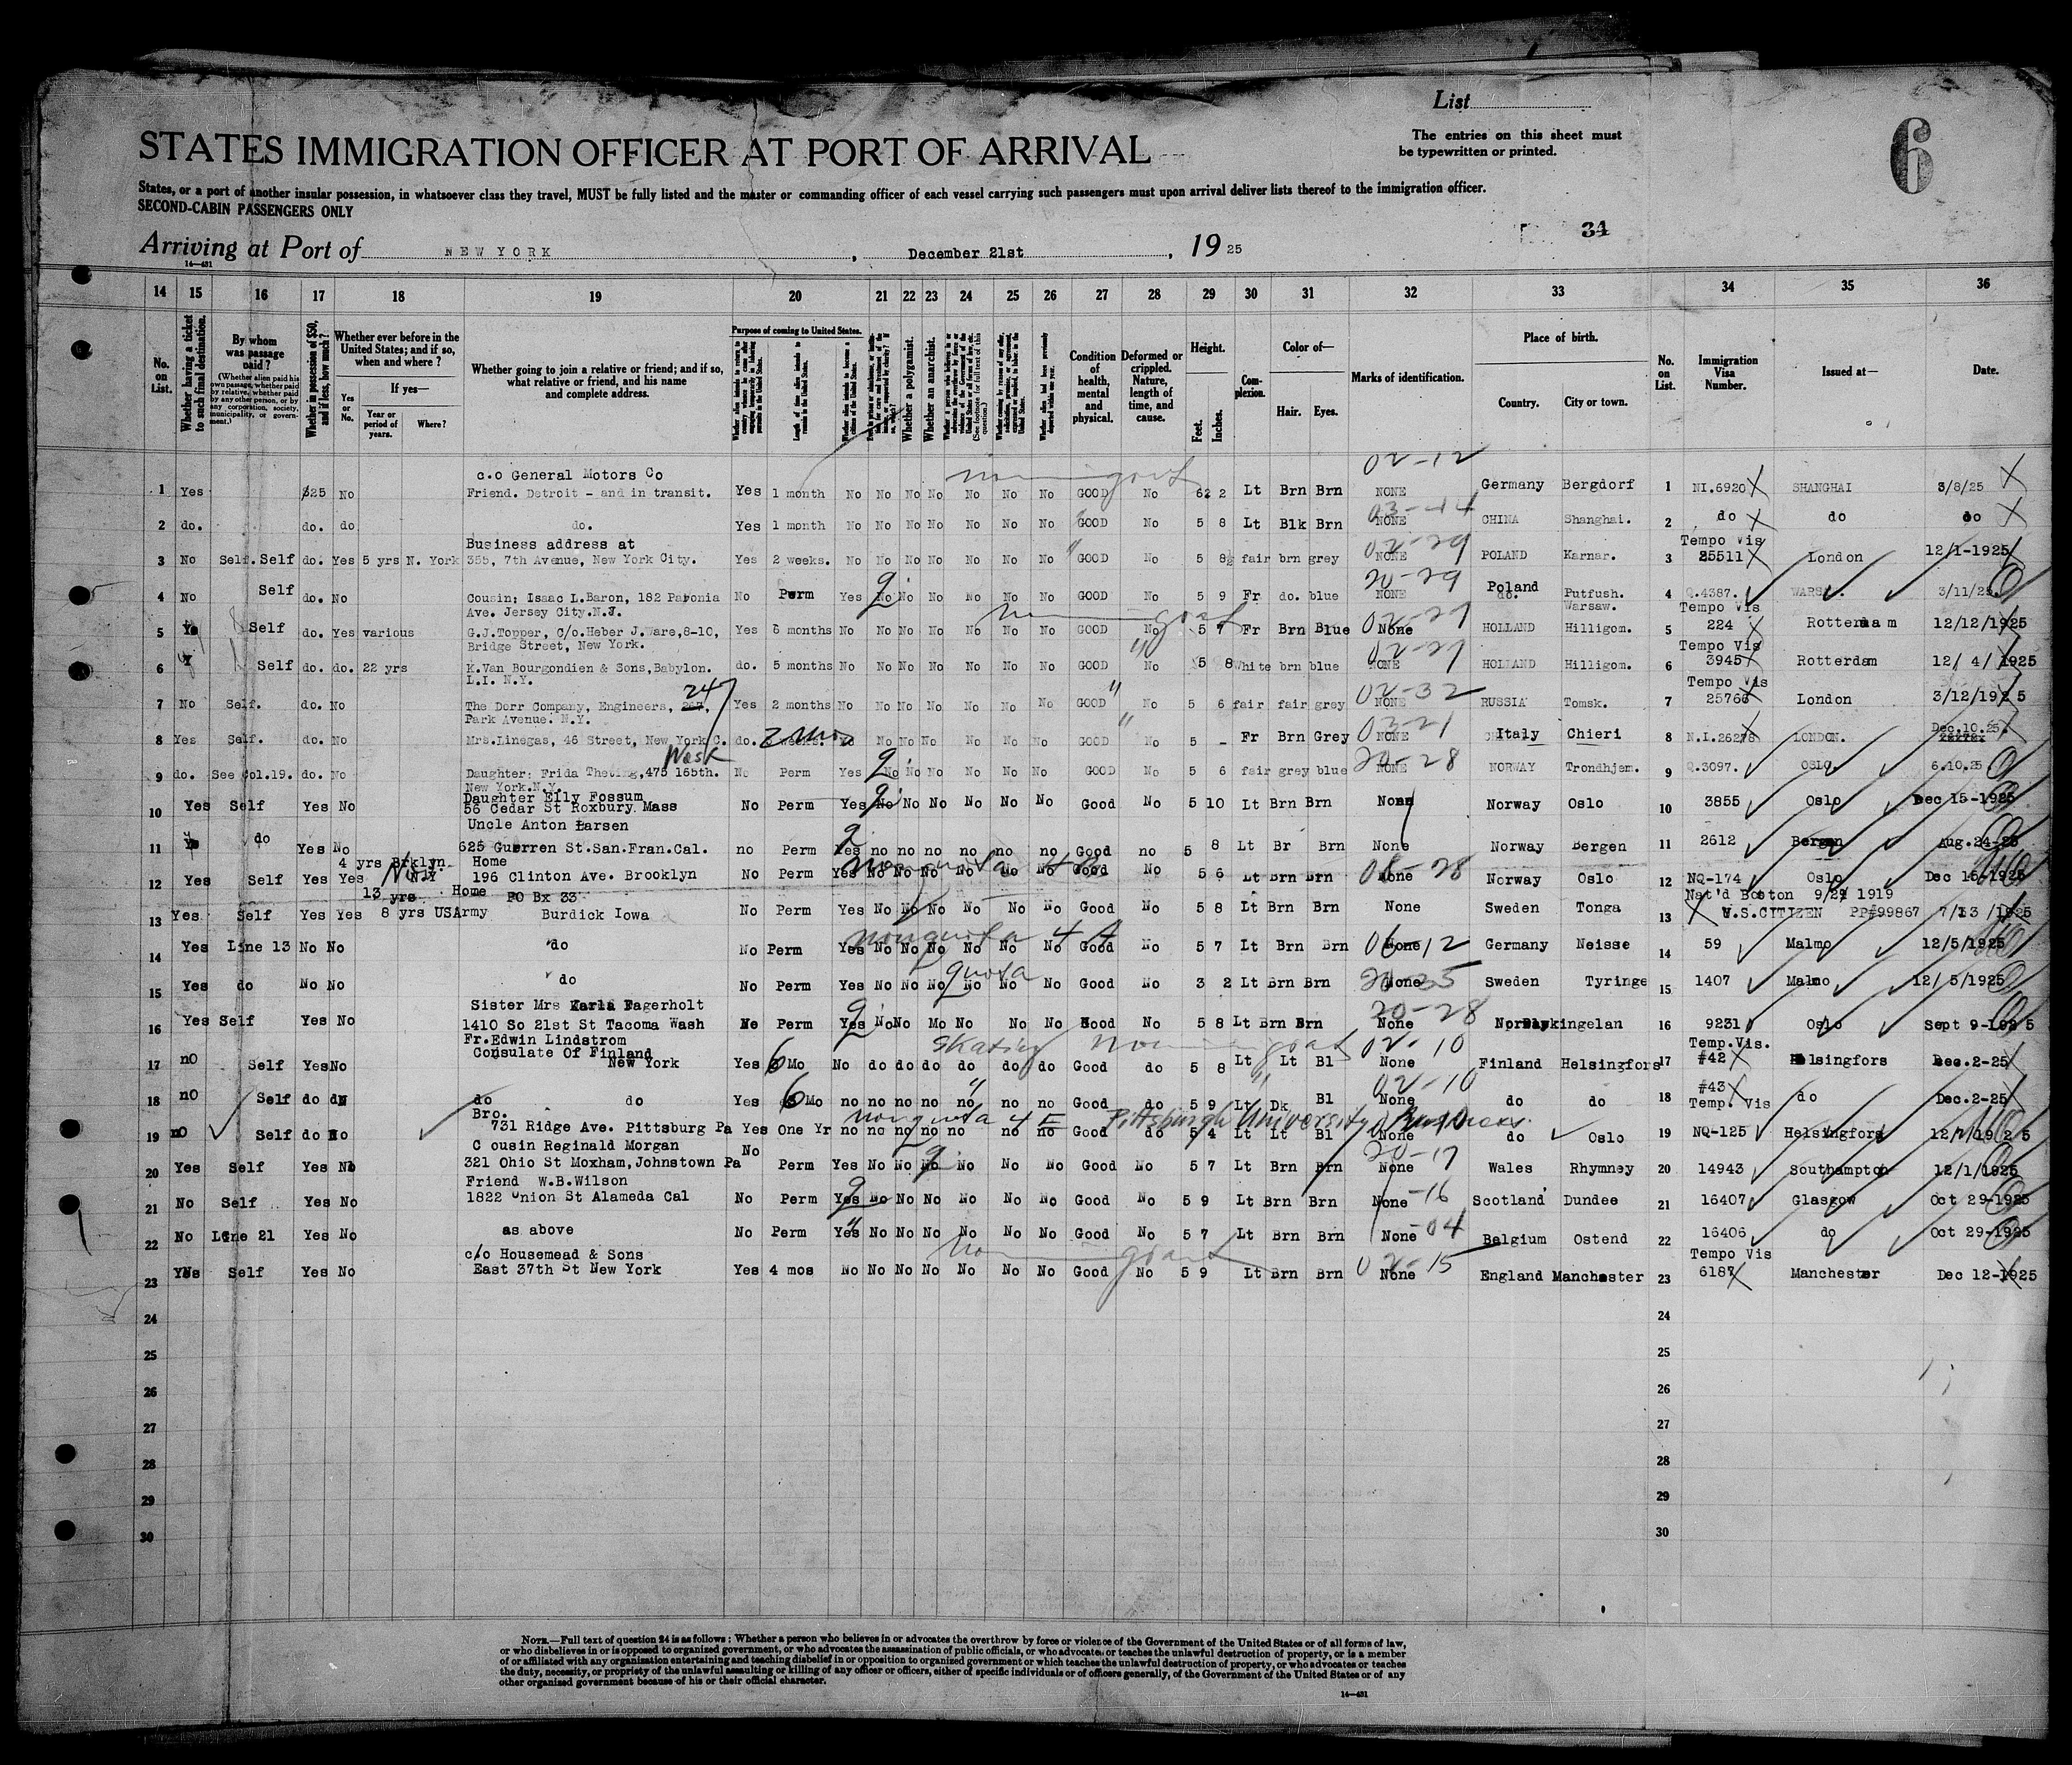 List
The entries on this sheet must
be typewritten or printed.
6
STATES IMMIGRATION OFFICER AT PORT OF ARRIVAL
States, or a port of another insular possession, in whatsoever class they travel, MUST be fully listed and the master or commanding officer of each vessel carrying such passengers must upon arrival deliver lists thereof to the immigration officer.
SECOND-CABIN PASSENGERS ONLY
34
Arriving at Port of NEW YORK, December 21st, 19 25
14—431
14 15 16 17 18 19 20 21 22 23 24 25 26 27 28 29 30 31 32 33 34 35 36
No. on List.
Whether having a ticket to such final destination.
By whom was passage paid?
(Whether alien paid his own passage, whether paid by relative, whether paid by any other person, or by any corporation, society, municipality, or government.)
Whether in possession of $50, and if less, how much?
Whether ever before in the United States; and if so, when and where?
If yes—
Yes or No.
Year or period of years.
Where?
Whether going to join a relative or friend; and if so, what relative or friend, and his name and complete address.
Purpose of coming to United States.
Length of time alien intends to remain in the United States.
Whether a polygamist.
Whether an anarchist.
Condition of health, mental and physical.
Deformed or crippled. Nature, length of time, and cause.
Height.
Feet.
Inches.
Complexion.
Color of—
Hair. Eyes.
Marks of identification.
Place of birth.
Country. City or town.
No. on List.
Immigration Visa Number.
Issued at—
Date.
c.o General Motors Co 02-12
1 Yes $25 No Friend. Detroit - and in transit. Yes 1 month No No No No No No No GOOD No 6 2 Lt Brn Brn NONE Germany Bergdorf 1 NI.6920 SHANGHAI 3/8/25
2 do. do. do do. Yes 1 month No No No No No No No GOOD No 5 8 Lt Blk Brn NONE CHINA Shanghai. 2 do do do
Business address at Tempo Vis
3 No Self. Self do. Yes 5 yrs N. York 355, 7th Avenue, New York City. Yes 2 weeks. No No No No No No No GOOD No 5 8½ fair brn grey NONE POLAND Karnar. 3 25511 London 12/1-1925
20-29
4 No Self do. No Cousin: Isaac L.Baron, 182 Pavonia Ave. Jersey City.N.J. No Perm Yes No No No No No No GOOD No 5 9 Fr do. blue NONE Poland Putfush. Warsaw. 4 Q.4387. 3/11/25
Tempo Vis
5 Self do. Yes various G.J.Topper, C/o.Heber J.Ware,8-10, Bridge Street, New York. Yes 6 months No No No No No No No GOOD No 5 7 Fr Brn Blue None HOLLAND Hilligom. 5 224 Rotterdam 12/12/1925
Tempo Vis
6 Self do. do. 22 yrs K.Van Bourgondien & Sons,Babylon. L.I. N.Y. do. 5 months No No No No No No No GOOD No 5 8 White brn blue NONE HOLLAND Hilligom. 6 3945 Rotterdam 12/ 4/ 1925
247 02-32 Tempo Vis
7 No Self. do. No The Dorr Company, Engineers, Park Avenue. N.Y. Yes 2 months No No No No No No No GOOD No 5 6 fair fair grey NONE RUSSIA Tomsk. 7 25766 London 3/12/1925
2 mos 03-21 Dec.10.25.
8 Yes Self. do. No Mrs.Linegas, 46 Street, New York C. do. No No No No No No GOOD No 5 - Fr Brn Grey NONE Italy Chieri 8 N.I.26278 LONDON.
West 20-28
9 do. See Col.19. do. No Daughter: Frida Theting,475 165th. New York.N.Y. No Perm Yes No No No No No No GOOD No 5 6 fair grey blue NONE NORWAY Trondhjem. 9 Q.3097. OSLO. 6.10.25
Daughter Elly Fossum
10 Yes Self Yes No 56 Cedar St Roxbury Mass No Perm Yes No No No No No No Good No 5 10 Lt Brn Brn None Norway Oslo 10 3855 Oslo Dec 15-1925
Uncle Anton Larsen
11 do Yes No 625 Guerren St.San.Fran.Cal. no Perm Yes no no no no no no Good no 5 8 Lt Br Brn None Norway Bergen 11 2612 Bergen Aug.24-25
4 yrs Brklyn. N.Y Home nonquota 4B
12 Yes Self Yes Yes 196 Clinton Ave. Brooklyn No Perm Yes No No No No No No Good No 5 6 Lt Brn Brn None Norway Oslo 12 NQ-174 Oslo Dec 15-1925
13 yrs Home PO Bx 33 Nat'd Boston 9/24 1919
13 Yes Self Yes Yes 8 yrs USArmy Burdick Iowa No Perm Yes No No No No No No Good No 5 8 Lt Brn Brn None Sweden Tonga 13 U.S.CITIZEN PP#99867 7/13 /1925
nonquota 4 A 06-12
14 Yes Line 13 No No do No Perm Yes No No No No No No Good No 5 7 Lt Brn Brn None Germany Neisse 14 59 Malmo 12/5/1925
quota 20-35
15 Yes do No No do No Perm Yes No No No No No No Good No 3 2 Lt Brn Brn None Sweden Tyringe 15 1407 Malmo 12/ 5/1925
Sister Mrs Karla Fagerholt 20-28
16 Yes Self Yes No 1410 So 21st St Tacoma Wash No Perm Yes No No No No No No Good No 5 8 Lt Brn Brn None Norway 16 9231 Oslo Sept 9-1925
Fr.Edwin Lindstrom skating 02-10 Temp.Vis.
17 nO Self Yes No Consulate Of Finland New York Yes 6 Mo No do do do do do do Good do 5 8 Lt Lt Bl None Finland Helsingfors 17 #42 Helsingfors Dec.2-25
02-10 #43
18 nO Self do do do Yes 6 Mo no no no no no no no Good do 5 9 Lt Dk Bl None do do 18 Temp. Vis do Dec.2-25
Bro. nonquota 4 E Pittsburgh University
19 nO Self do No 731 Ridge Ave. Pittsburg Pa Yes One Yr no no no no no no no Good do 5 4 Lt Lt Bl None do Oslo 19 NQ-125 Helsingfors 12/1/1925
Cousin Reginald Morgan 20-17
20 Yes Self Yes No 321 Ohio St Moxham,Johnstown Pa No Perm Yes No No No No No No Good No 5 7 Lt Brn Brn None Wales Rhymney 20 14943 Southampton 12/1/1925
Friend W.B.Wilson
21 No Self Yes No 1822 Union St Alameda Cal No Perm Yes No No No No No No Good No 5 9 Lt Brn Brn None -16 Scotland Dundee 21 16407 Glasgow Oct 29-1925
22 No Line 21 Yes No as above No Perm Yes No No No No No No Good No 5 7 Lt Brn Brn None -04 Belgium Ostend 22 16406 do Oct 29-1925
c/o Housemead & Sons 02-15 Tempo Vis
23 Yes Self Yes No East 37th St New York Yes 4 mos No No No No No No No Good No 5 9 Lt Brn Brn None England Manchester 23 6187 Manchester Dec 12-1925
24 24
25 25
26 26
27 27
28 28
29 29
30 30
NOTE.—Full text of question 24 is as follows: Whether a person who believes in or advocates the overthrow by force or violence of the Government of the United States or of all forms of law,
or who disbelieves in or is opposed to organized government, or who advocates the assassination of public officials, or who advocates or teaches the unlawful destruction of property, or is a member
of or affiliated with any organization entertaining and teaching disbelief in or opposition to organized government or which teaches the unlawful destruction of property, or who advocates or teaches
the duty, necessity, or propriety of the unlawful assaulting or killing of any officer or officers, either of specific individuals or of officers generally, of the Government of the United States or of any
other organized government because of his or their official character.
14—431